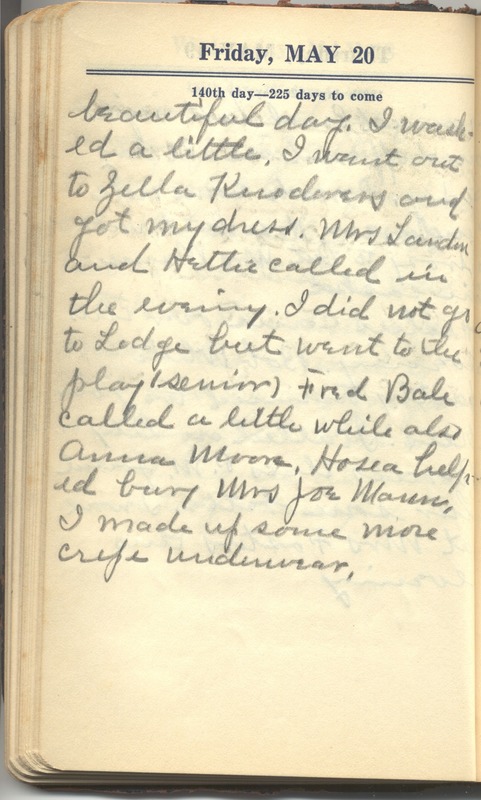 Friday, MAY 20
140th day—225 days to come
beautiful day. I wash-
ed a little. I went out
to Zella Knoderers and
got my dress. Mrs Landon
and Hettie called in
the evening. I did not go
to Lodge but went to the
play (senior) Fred Bale
called a little while also
Anna Moore. Hosea help-
ed bury Mrs Joe Mann.
I made up some more
crepe underwear.